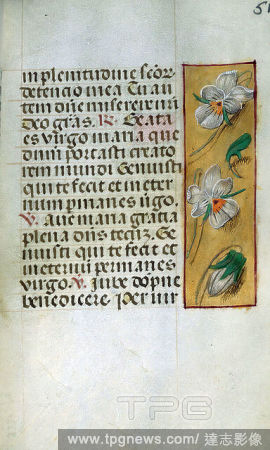 51
in plenitudine scōr̄
detencio mea Tu au
tem dn̄e miserere nr̄i
deo grās. R. Beata
es virgo maria que
dnm̄ portasti creato
rem mundi Genuisti
qui te fecit et in eter
num pmanes v̄go.
V. Aue maria gratia
plena dn̄s tecū. Ge
nuisti qui te fecit et
in eternū permanes
virgo. V. Iube dōpne
benedicere. Per vir
TPG
www.tpgnews.com/ 達志影像